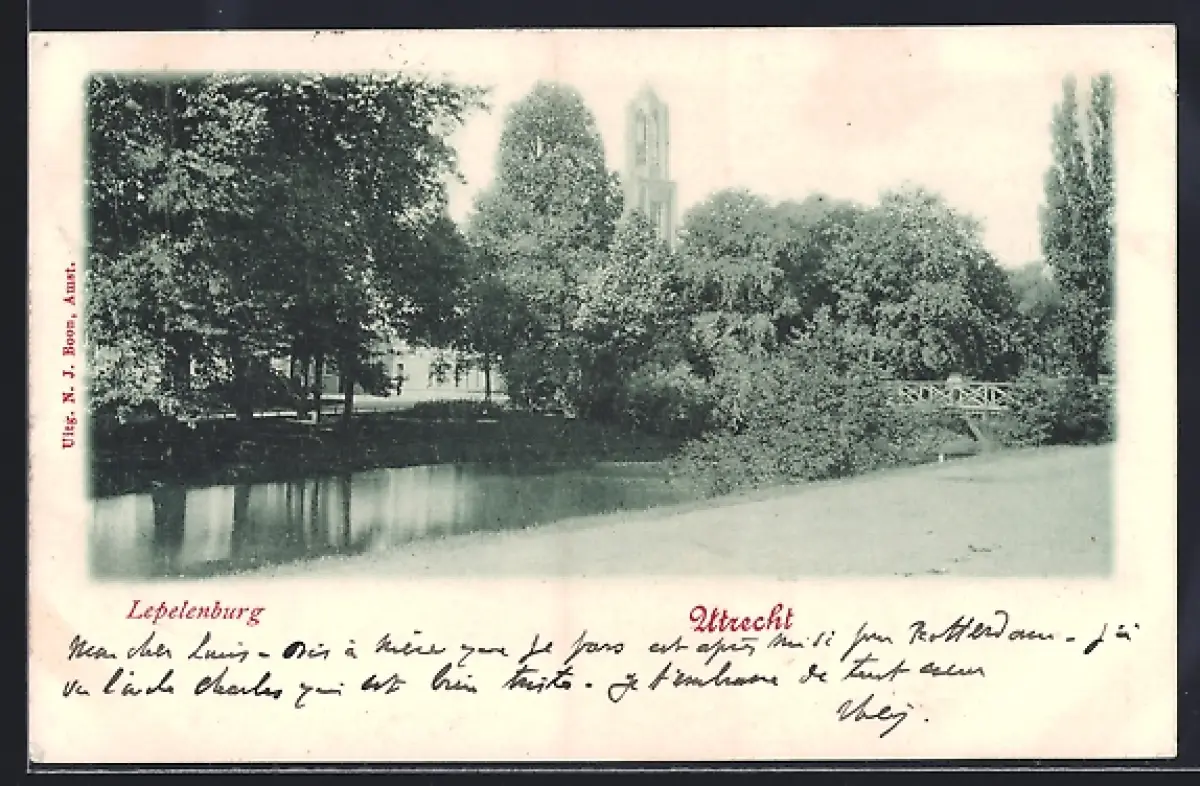 Uitg. N. J. Boon, Amst.
Lepelenburg
Utrecht
Mon cher Louis – Dis à Mère que je pars cet après midi pour Rotterdam – j'ai
vu l'oncle Charles qui est bien triste. Je t'embrasse de tout cœur